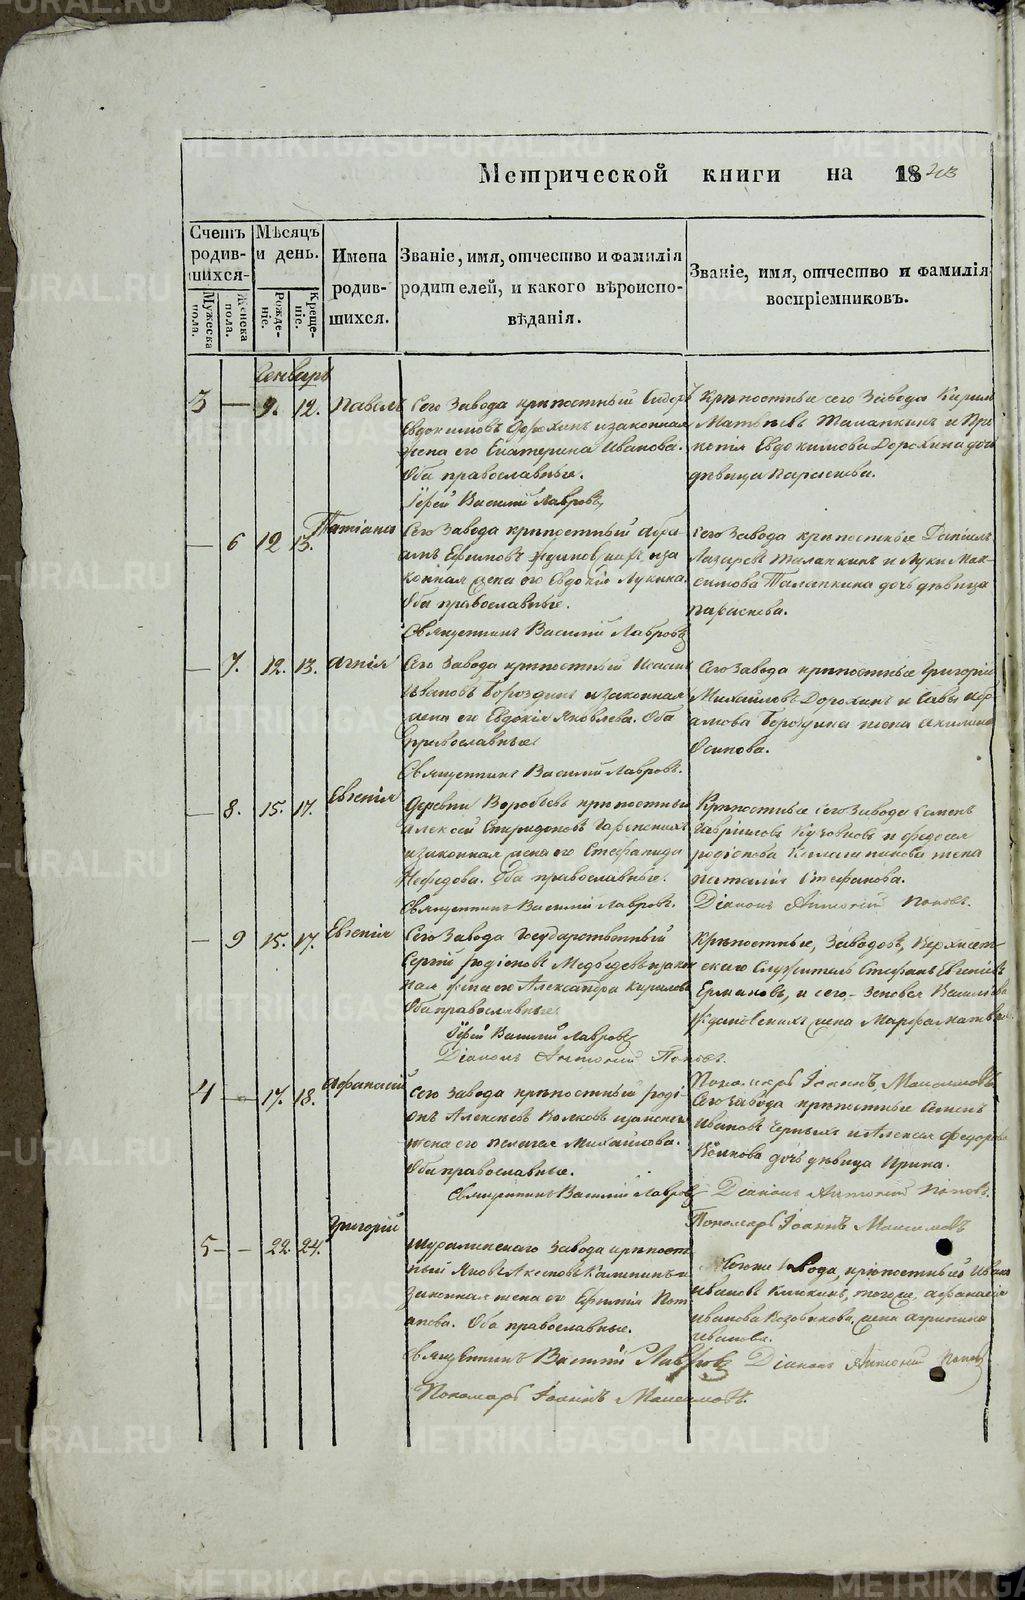 Метрической книги на 1843
Счетъ родив-шихся. Мѣсяцъ и день. Имена родив-шихся. Званіе, имя, отчество и фамилія родителей, и какого вѣроиспо-вѣданія. Званіе, имя, отчество и фамилія воспріемниковъ.
Мужеска пола. Женска пола. Рожде-ніе. Креще-ніе.
Генварь
3 — 9. 12. Павелъ
Сего Завода крѣпостный Сидоръ
Евдокимовъ Дорохинъ и законная
жена его Екатерина Иванова.
Оба православные.
Іерей Василій Лавровъ
Крѣпостные сего Завода Кирилъ
Матвѣевъ Талапкинъ и Про
копія Евдокимова Дорохина дочь
дѣвица Парасковья.
— 6 12 13. Татіана
Сего Завода крѣпостный Абра
амъ Ефимовъ и за
конная жена его Евдокія Лукина
Оба православные.
Священникъ Василій Лавровъ
Сего Завода крѣпостные Даніилъ
Лазаревъ Талапкинъ и Луки Мак-
симова Талапкина дочь дѣвица
параскева.
— 7. 12. 13. Агнія
Сего Завода крѣпостный Исаакъ
Ивановъ Бороздинъ и законная
жена его Евдокія Яковлева. Оба
православные.
Священникъ Василій Лавровъ.
Сего Завода крѣпостные Григорій
Михайловъ Дорохинъ и Савы
Бороздина жена Акилина
Осипова.
— 8. 15. 17. Евгенія
Деревни Воробьевъ крѣпостный
Алексей Спиридоновъ
и законная жена его Стефанида
Нефедова. Оба православные.
Священникъ Василій Лавровъ.
Крѣпостные сего Завода Семенъ
Гавриловъ Кузовковъ и Федосея
родіонова жена
наталія Стефанова.
Діаконъ Антоній Поповъ.
— 9 15. 17. Евгенія
Сего Завода Государственный
Сергій родіоновъ Медвѣдевъ и закон
ная жена его Александра Кирилова
Оба православные.
Іерей Василій Лавровъ
Діаконъ Антоній Поповъ.
Крѣпостные, Заводовъ, Верхисет-
скаго Служитель Стефанъ Евгеніевъ
Ермаковъ, и сего-Зеновея Василіева
Ждановскихъ жена Марфа Матвѣева.
Пономарь Іоаннъ Максимовъ
4 — 17. 18. Афанасій
Сего Завода крѣпостный роді
онъ Алексѣевъ Волковъ и законая
жена его пелагея Михаилова.
Оба православные.
Священникъ Василій Лавровъ
Сего Завода крѣпостные Семенъ
Ивановъ Черныхъ и Алексея Федорова
Войнова дочь дѣвица Ирина.
Діаконъ Антоній Поповъ.
Пономарь Іоаннъ Максимовъ
5 — 22. 24. Григорій
Шуралинскаго Завода крѣпост
ный Яковъ Аксеновъ Калининъ и
законная жена его Ефимія Пот
апова. Оба православные.
Священникъ Василій Лавровъ
Пономарь Іоаннъ Максимовъ.
Тогоже Завода, крѣпостный Иванъ
Ивановъ Клюкинъ, тогоже, афанасія
иванова Козовикова жена агрипина
иванова.
Діаконъ Антоній Поповъ
METRIKI.GASO-URAL.RU